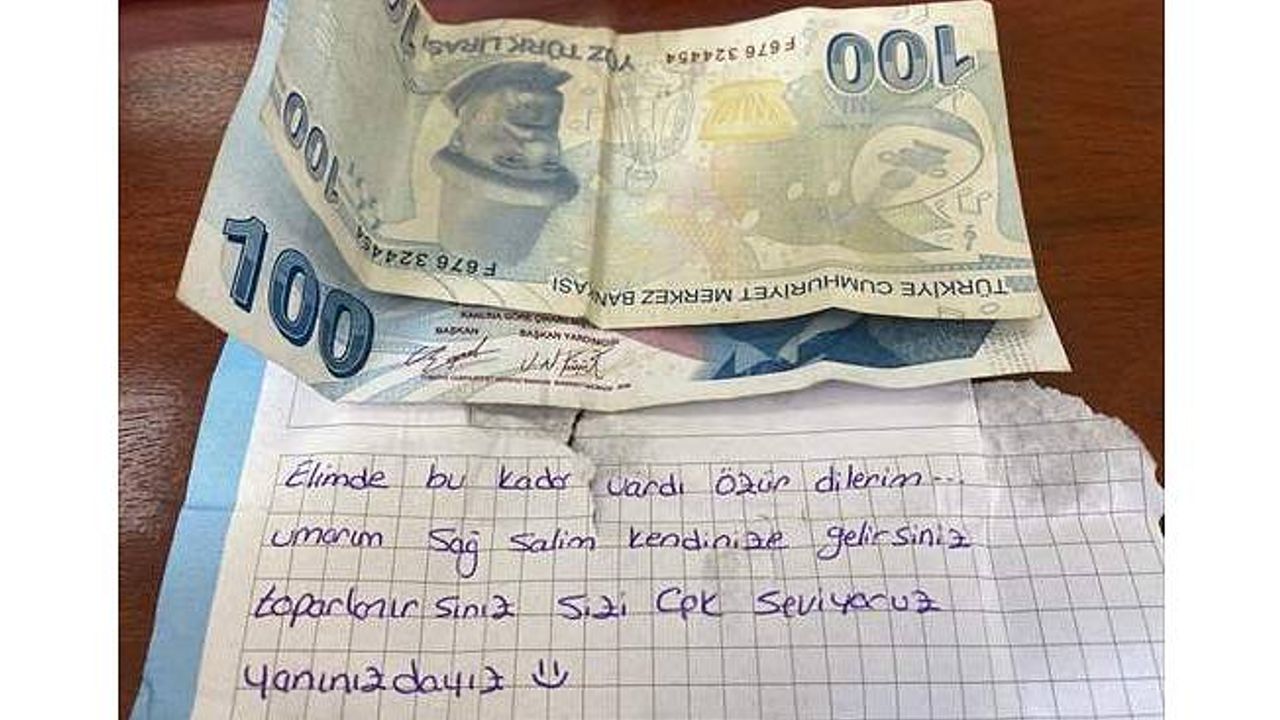 100
F676 324454
YÜZ TÜRK LİRASI
100
100
F676 324454
TÜRKİYE CUMHURİYET MERKEZ BANKASI
100
BAŞKAN BAŞKAN YARDIMCISI
Elimde bu kadar vardı özür dilerim...
umarım sağ salim kendinize gelirsiniz
toparlanırsınız sizi çok seviyoruz
yanınızdayız